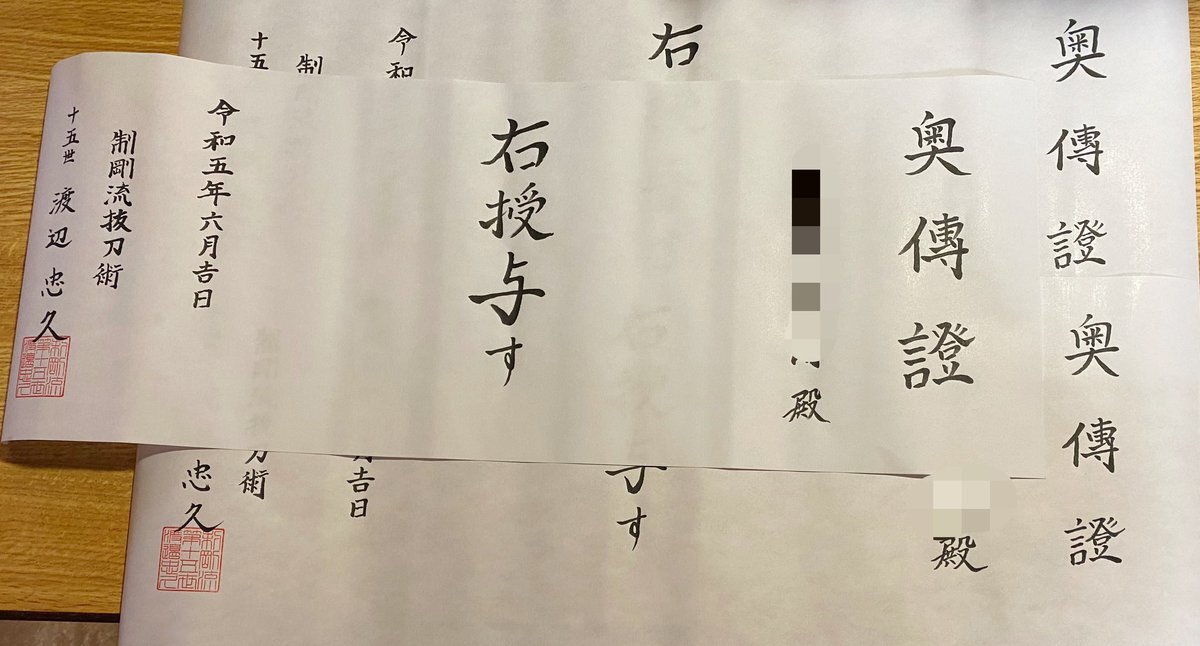 奥傳證
右
令和
制
十五
奥傳證
殿
右授与す
令和五年六月吉日
制剛流抜刀術
十五世 渡辺忠久
奥傳證
殿
与す
月吉日
刀術
忠久